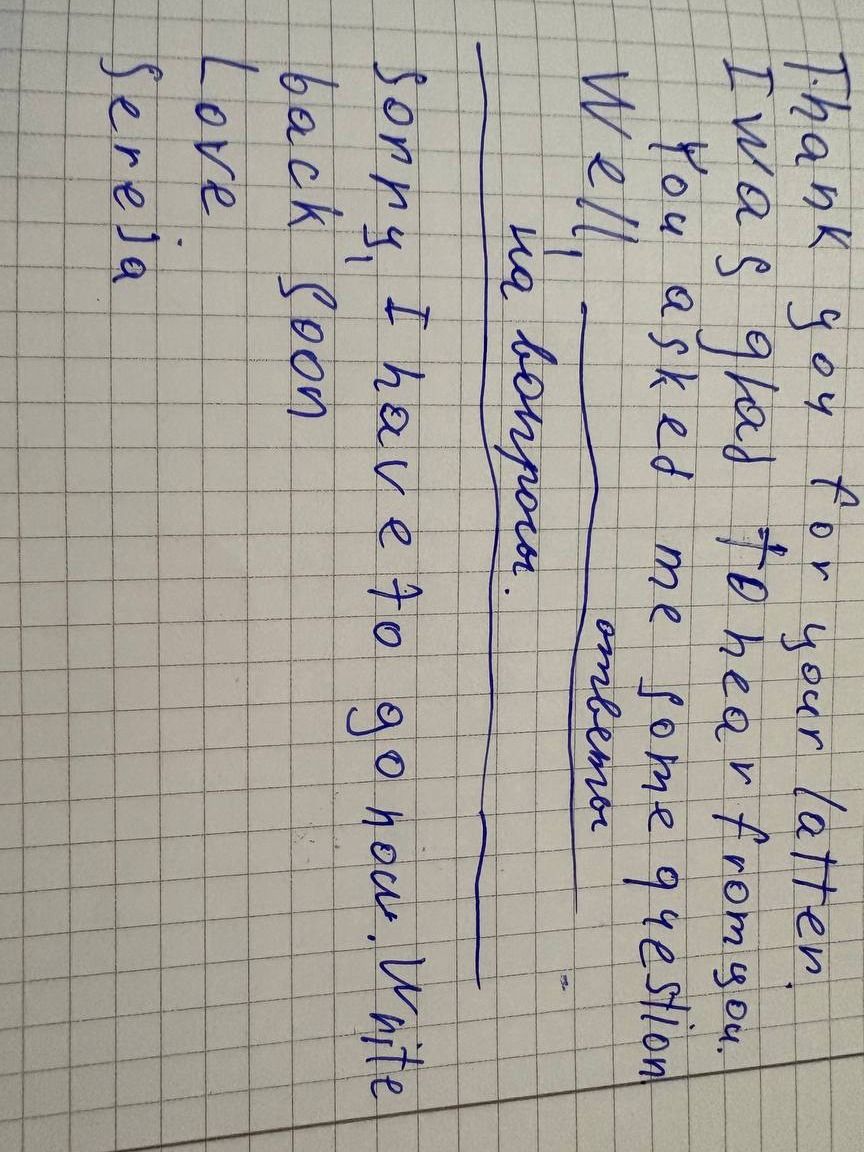 Thank you for your latter.
I was glad to hear from you.
You asked me some question.
Well, ответы
на вопросы.
Sorry, I have to go now. Write
back soon
Love
Sereja